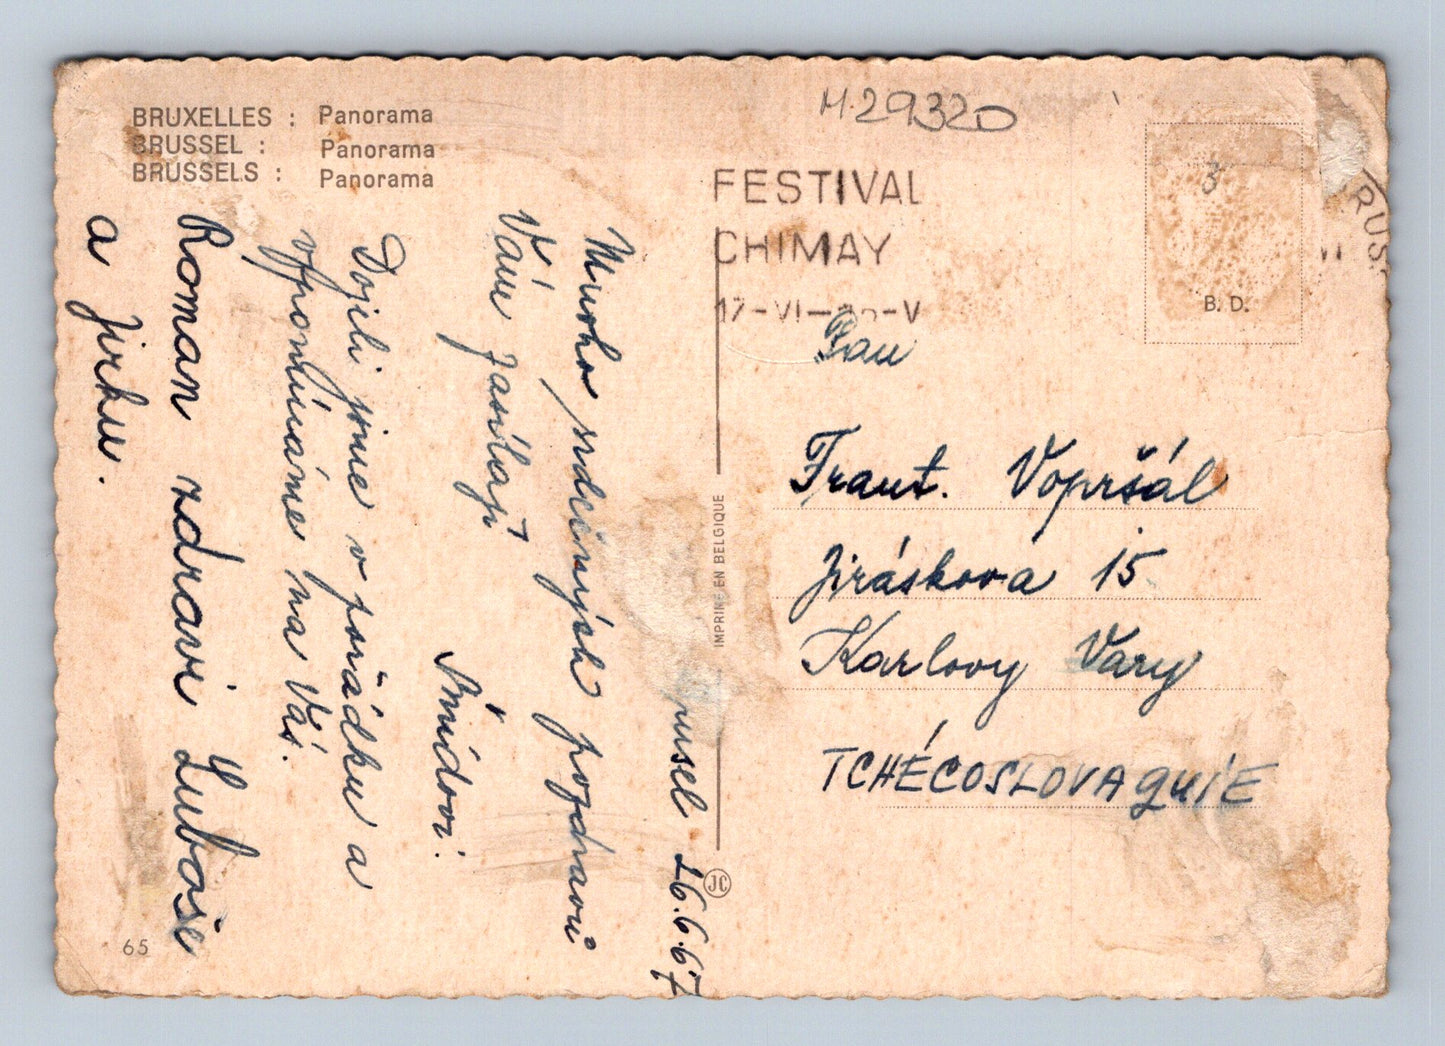 BRUXELLES : Panorama
BRUSSEL : Panorama
BRUSSELS : Panorama
M. 29320
FESTIVAL
CHIMAY
17-VI-
RUS
3
B. D.
Brusel 16.6.67
Mnoho srdečných pozdravů
Vám zasílají
Šmídovi.
Dojeli jsme v pořádku a
vzpomínáme na Vás.
Roman zdraví Luboše
a Jirku.
IMPRIMÉ EN BELGIQUE
JC
Pan
Frant. Vopršál
Jiráskova 15
Karlovy Vary
TCHÉCOSLOVAQUIE
65